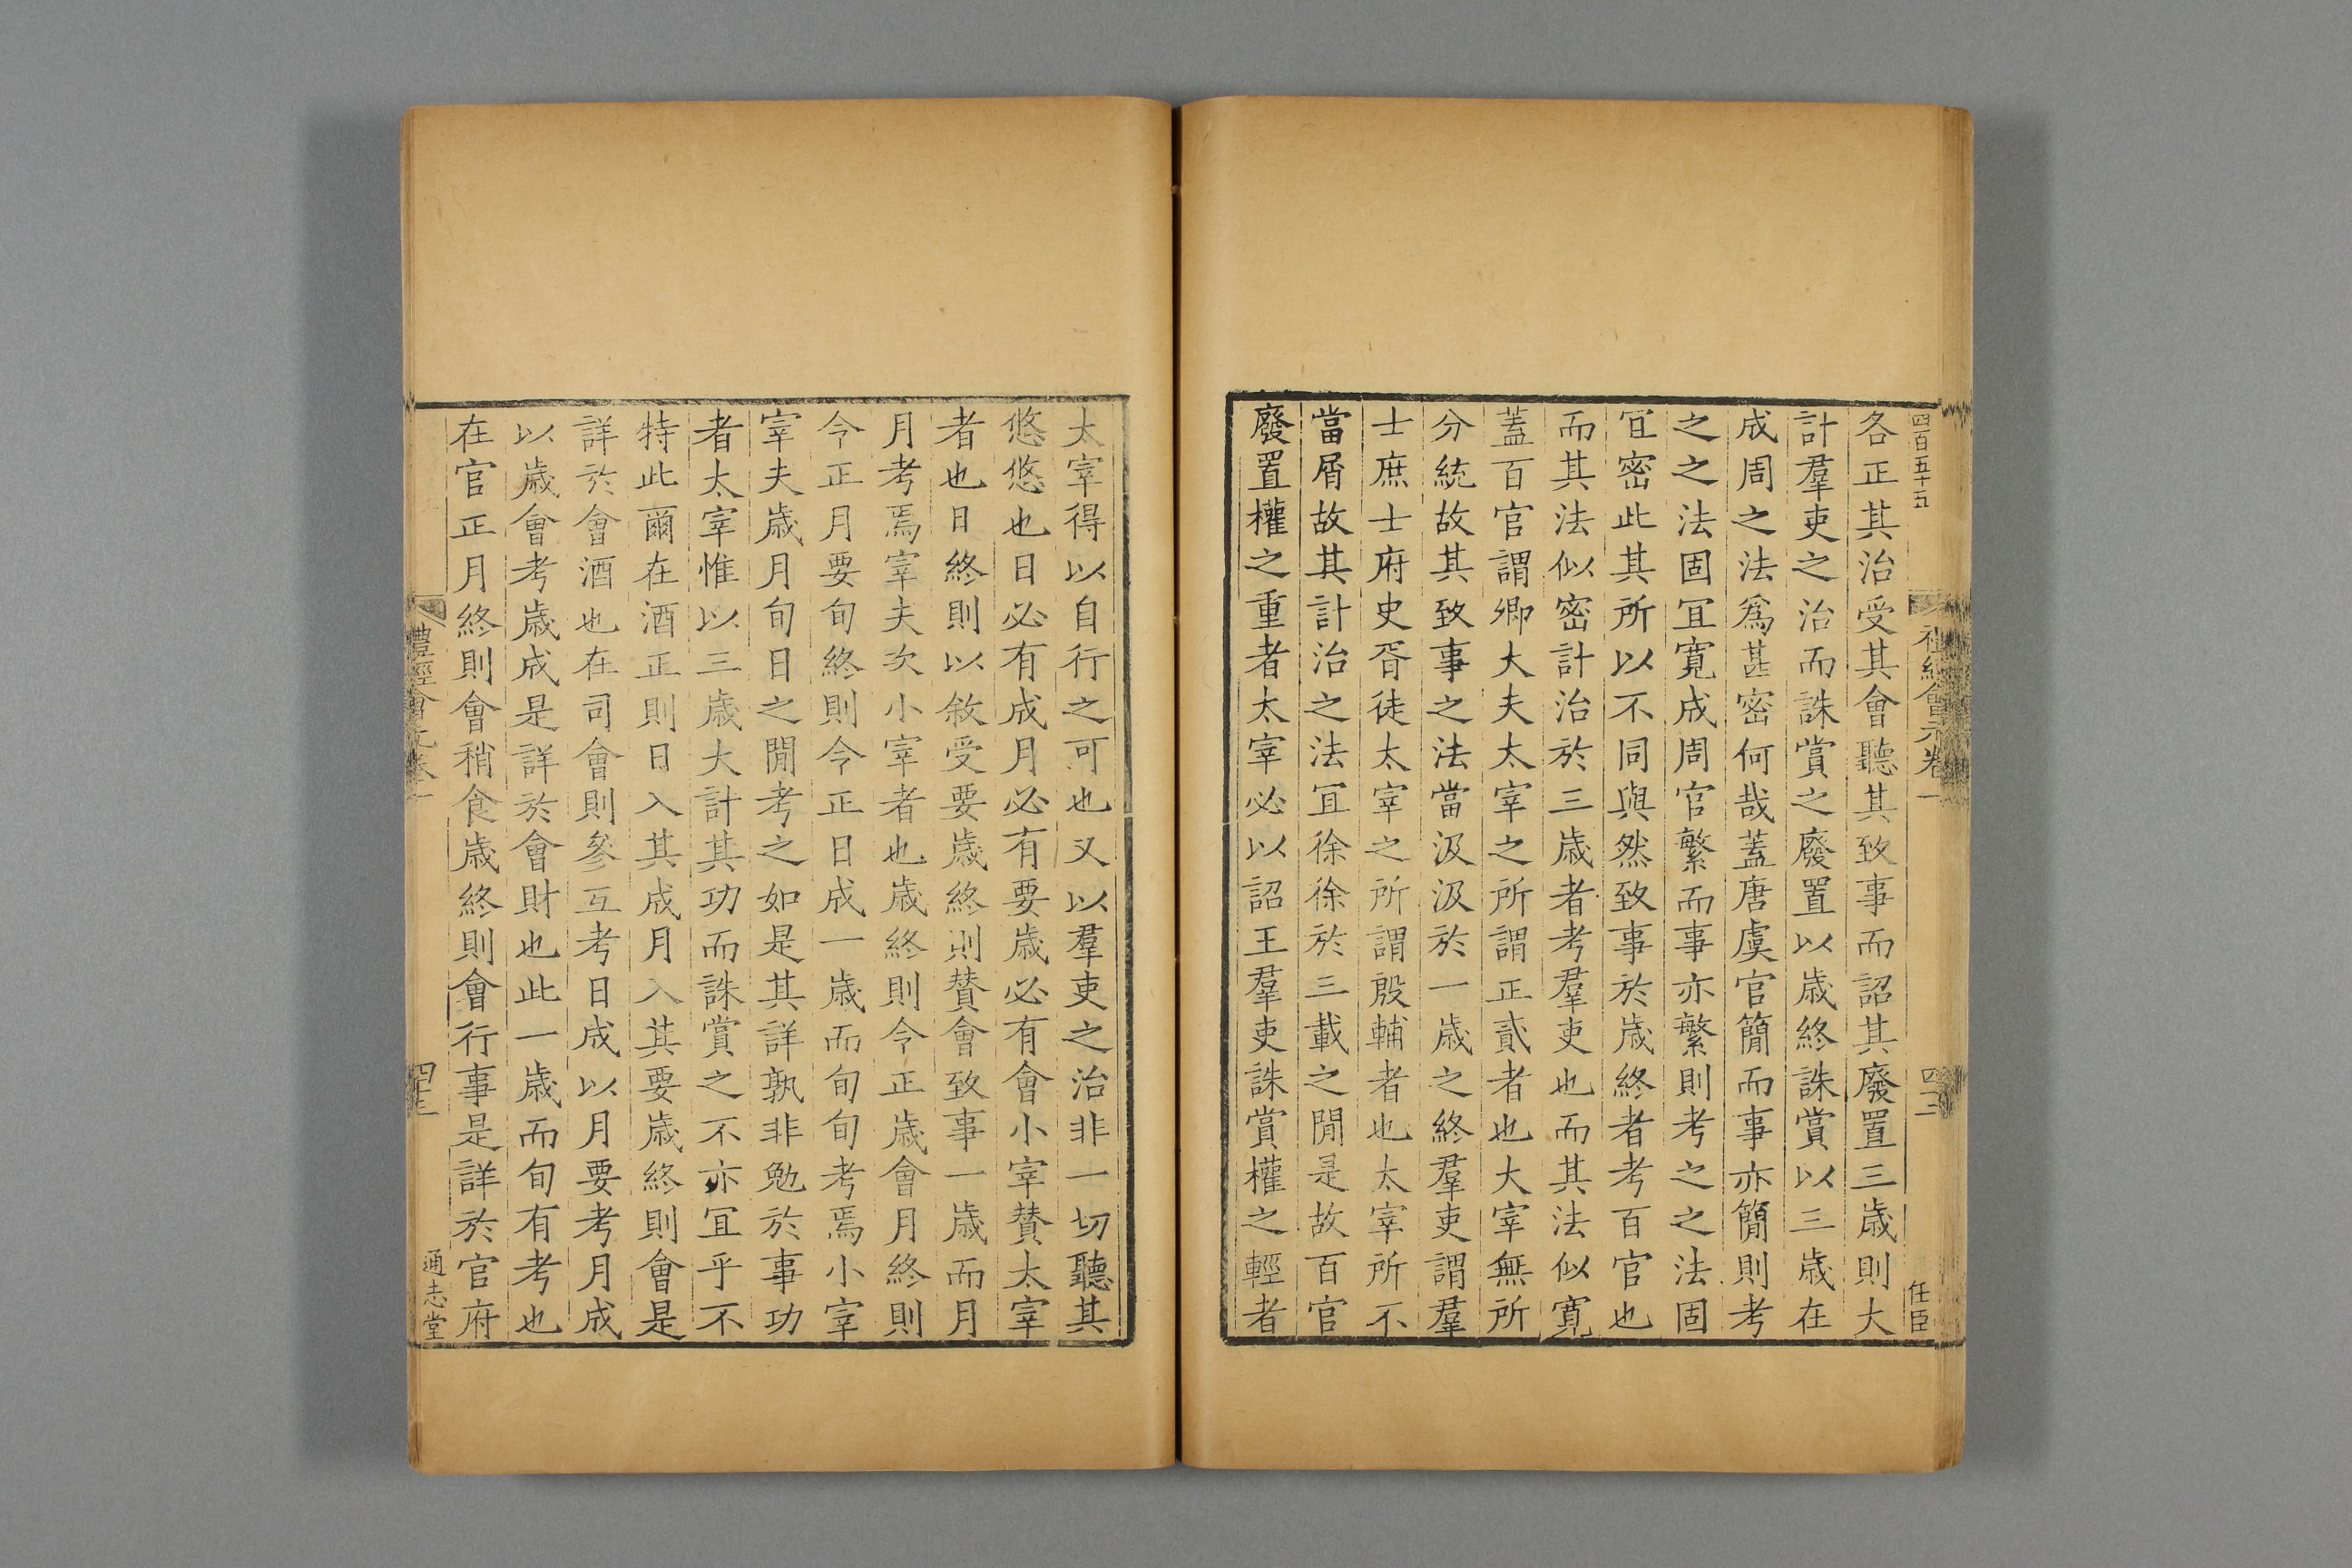 四百五十五
禮經會元卷一
四二
任臣
各正其治受其會聽其致事而詔其廢置三歳則大
計羣吏之治而誅賞之廢置以歳終誅賞以三歳在
成周之法爲甚密何哉蓋唐虞官簡而事亦簡則考
之之法固冝寛成周官繁而事亦繁則考之之法固
冝密此其所以不同與然致事於歳終者考百官也
而其法似密計治於三歳者考羣吏也而其法似寛
蓋百官謂卿大夫太宰之所謂正貳者也大宰無所
分統故其致事之法當汲汲於一歳之終羣吏謂羣
士庶士府史胥徒太宰之所謂殷輔者也太宰所不
當屑故其計治之法冝徐徐於三載之閒是故百官
廢置權之重者太宰必以詔王羣吏誅賞權之輕者
太宰得以自行之可也又以羣吏之治非一切聽其
悠悠也日必有成月必有要歳必有會小宰賛太宰
者也日終則以敘受要歳終則賛會致事一歳而月
月考焉宰夫次小宰者也歳終則令正歳會月終則
令正月要旬終則令正日成一歳而旬旬考焉小宰
宰夫歳月旬日之閒考之如是其詳孰非勉於事功
者太宰惟以三歳大計其功而誅賞之不亦冝乎不
特此爾在酒正則日入其成月入其要歳終則會是
詳於會酒也在司會則參互考日成以月要考月成
以歳會考歳成是詳於會財也此一歳而旬有考也
在官正月終則會稍食歳終則會行事是詳於官府
禮經會元卷一
四十三
通志堂